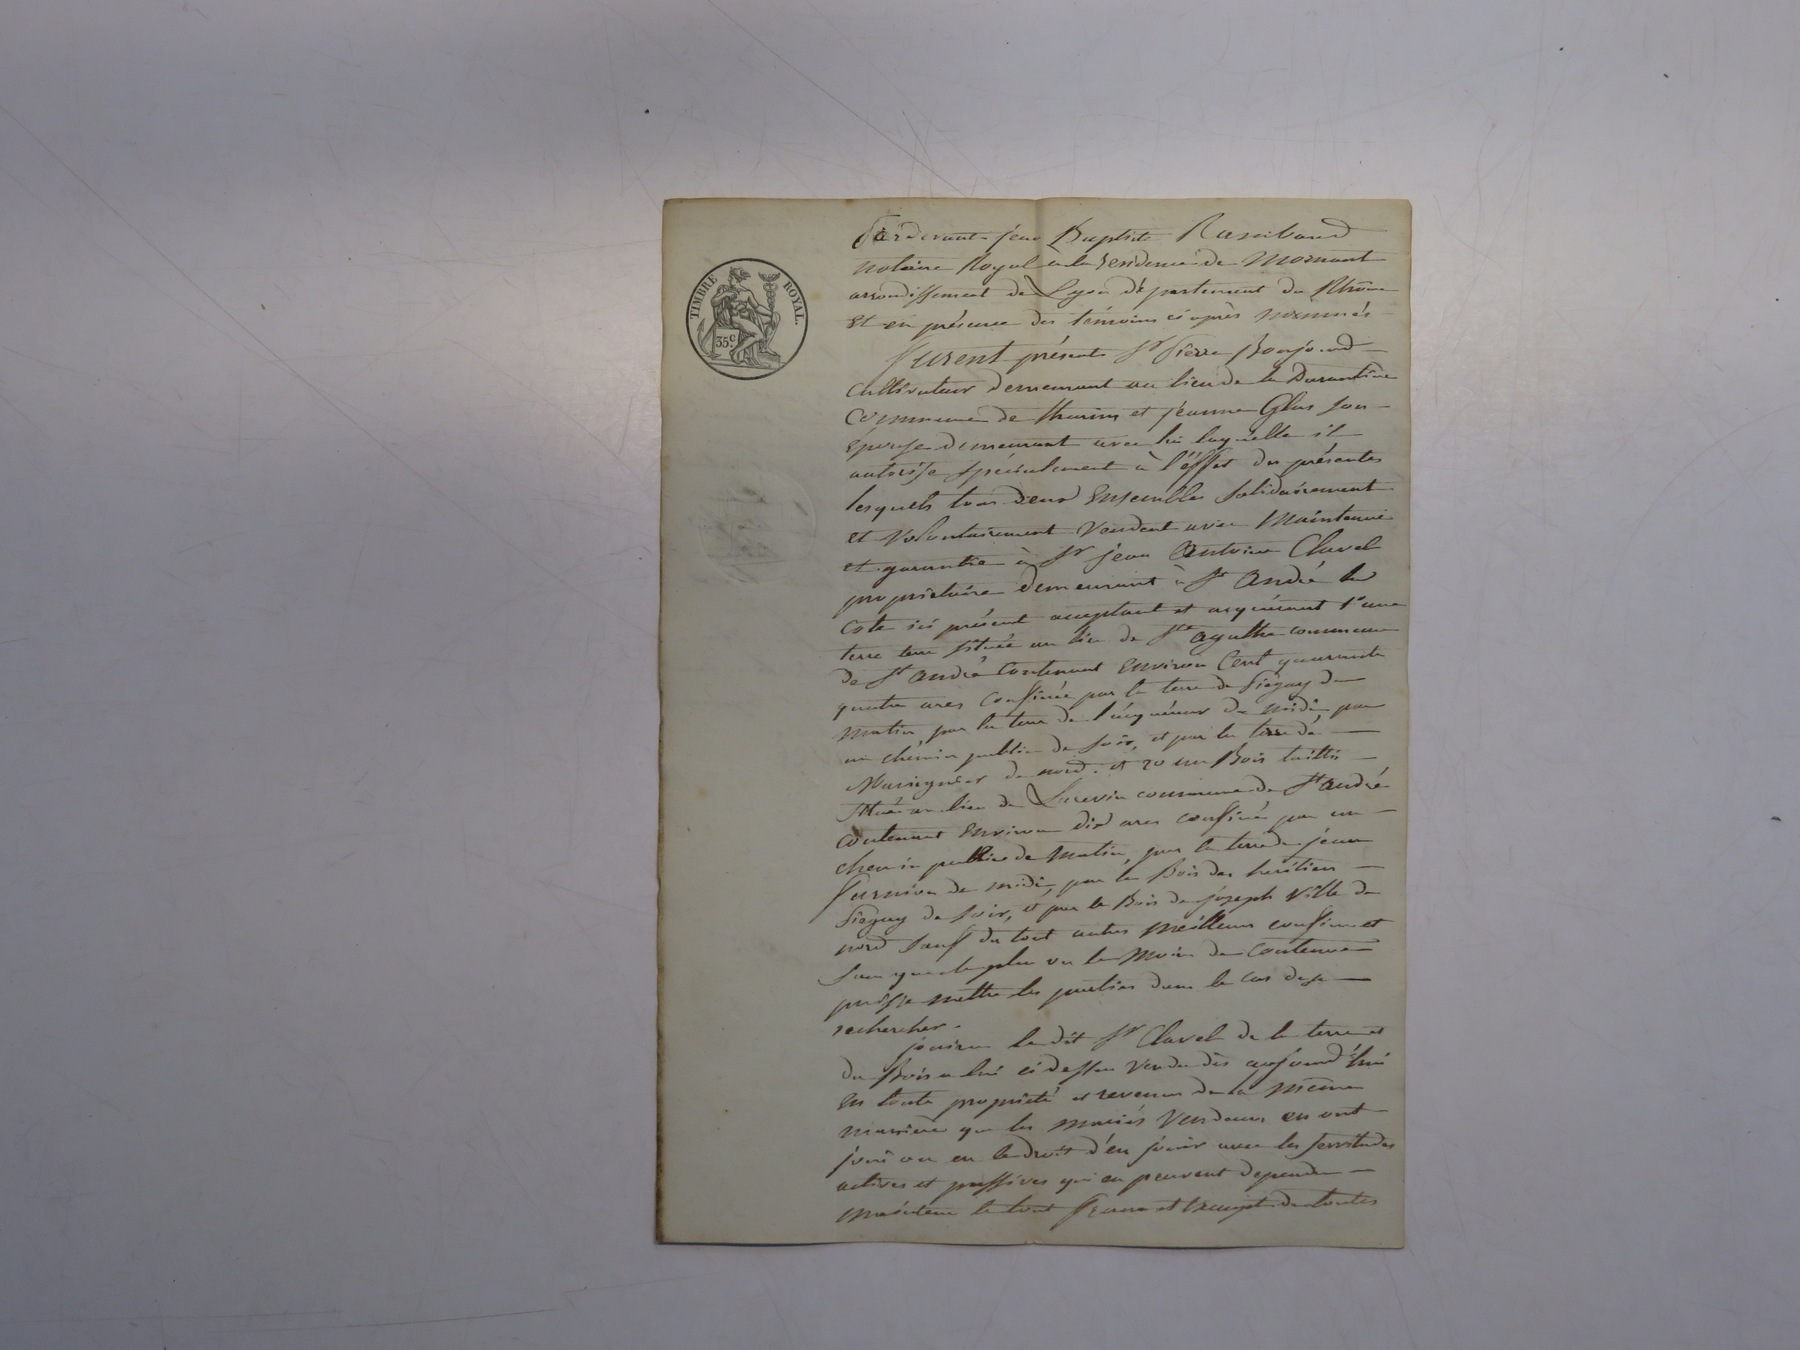 TIMBRE ROYAL.
35c.
Pardevant jean Baptiste Rambaud
notaire Royal a la residence de Mornant
arrondissement de Lyon département du Rhône
et en présence des témoins ci après nommés
furent présents Sr Pierre Bonjour
cultivateur demeurant au lieu de la Durantière
commune de thurins et jeanne Glas son
épouse demeurant avec lui laquelle il
autorise spécialement à l'éffet des présentes
lesquels tous deux Ensembles solidairement
et volontairement vendent avec Maintenue
et garantie à Sr jean Antoine Clavel
propriétaire demeurant à St André la
cote ici présent acceptant et acquérant 1° une
terre située au lieu de Ste agathe commune
de St André Contenant Environ Cent quarante
quatre ares confinée par la terre de de
matin, par la terre de l'acquéreur de midi, par
un chemin public de soir, et par la terre de
de nord. et 2° un Bois taillis
situé au lieu de commune de St André
contenant Environ dix ares confiné par un
chemin public de Matin, par la terre de jean
de midi, par le Bois des héritiers
de soir, et par le Bois de joseph Ville de
nord sauf du tout autres meilleurs confins et
sans que le plus ou le Moins de Contenue
puisse mettre les parties dans le cas de se
rechercher.
jouira le dit Sr Clavel de la terre et
du Bois a lui ci dessus vendu dès aujourd'hui
En toute propriété et revenus de la même
manière que les mariés Vendeurs en ont
joui ou eu le droit d'en jouir avec les servitudes
actives et passives qui en peuvent dependre
le tout franc et Exempt de toutes